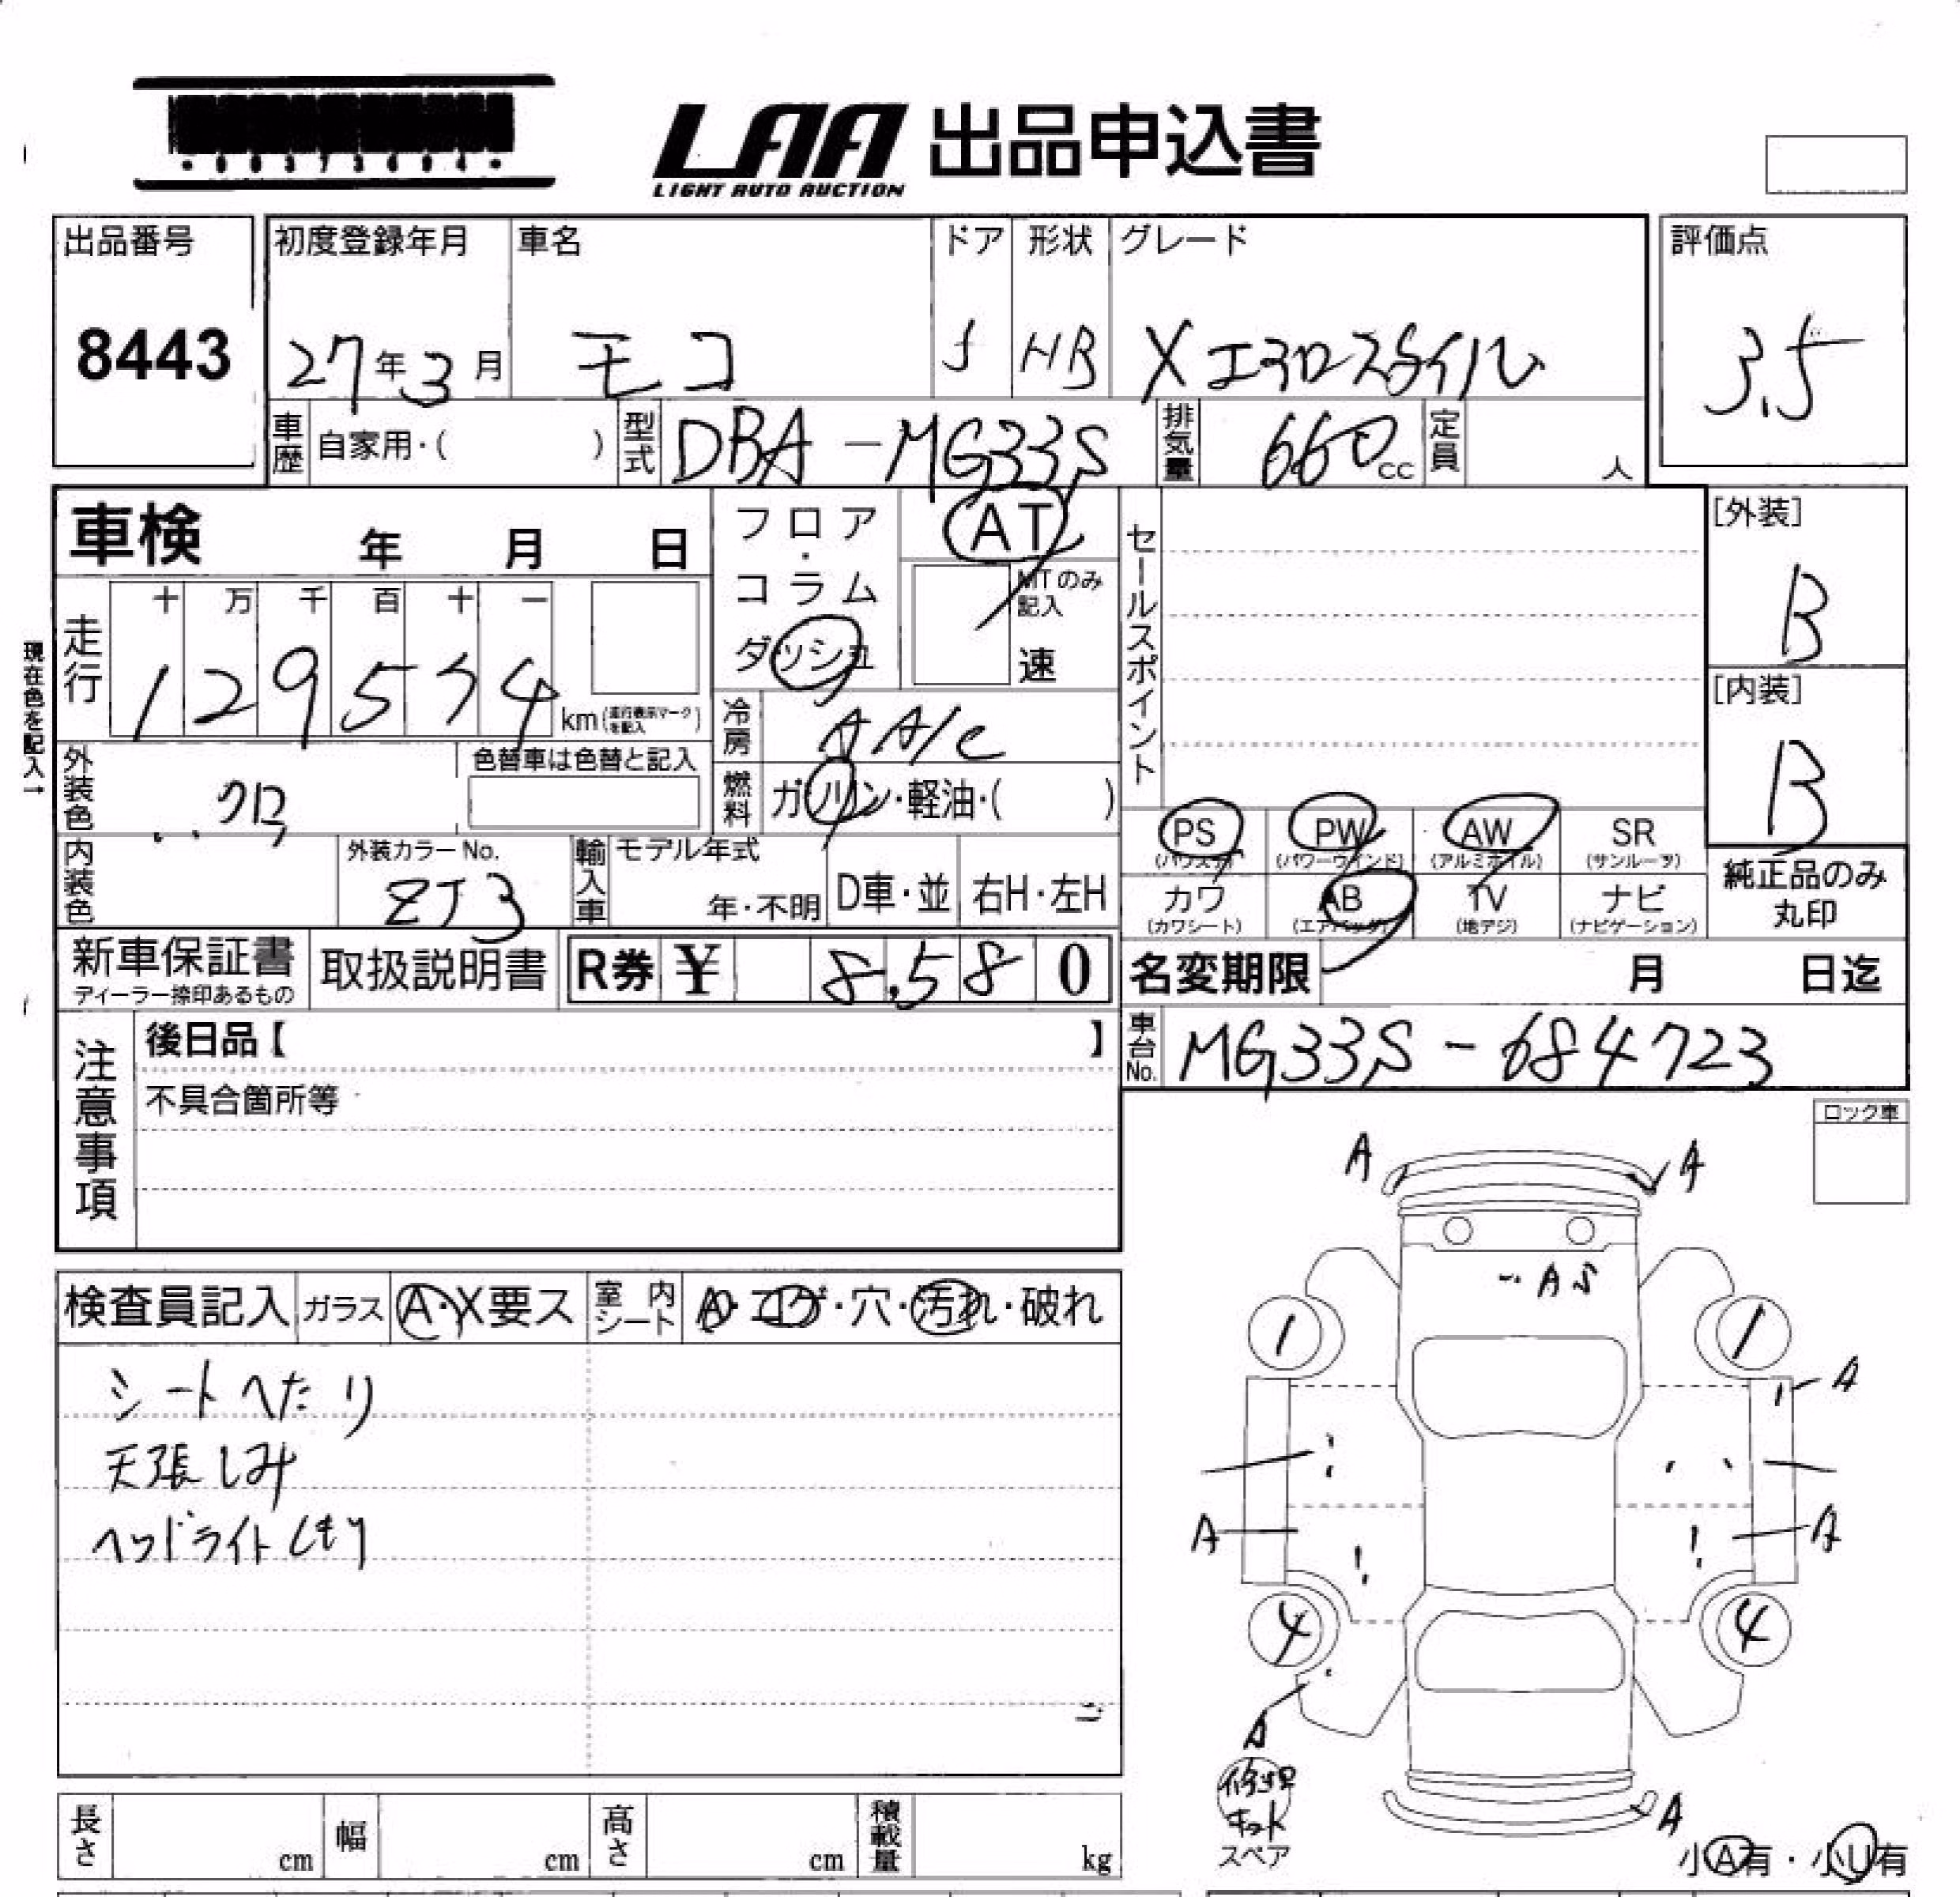 LAA 出品申込書
LIGHT AUTO AUCTION
出品番号
8443
初度登録年月
27年3月
車名
モコ
ドア
5
形状
HB
グレード
X エアロスタイル
評価点
3.5
車歴
自家用・( )
型式
DBA-MG33S
排気量
660cc
定員
人
車検 年 月 日
フロア・コラム
ダッシュ
AT
MTのみ記入
速
セールスポイント
[外装]
B
[内装]
B
現在色を記入→
走行
十 万 千 百 十 一
129574 km
外装色
クロ
色替車は色替と記入
冷房
AA/C
燃料
ガソリン・軽油・( )
内装色
外装カラーNo.
ZJ3
輸入車
モデル年式
年・不明
D車・並
右H・左H
PS
(パワステ)
PW
(パワーウインド)
AW
(アルミホイル)
SR
(サンルーフ)
カワ
(カワシート)
AB
(エアバッグ)
TV
(地デジ)
ナビ
(ナビゲーション)
純正品のみ
丸印
新車保証書
ディーラー捺印あるもの
取扱説明書
R券 ¥ 8,580
名変期限 月 日迄
車台No.
MG33S-684723
注意事項
後日品【 】
不具合箇所等
ロック車
検査員記入
ガラス
A・X要ス
室内シート
A・コゲ・穴・汚れ・破れ
シートへたり
天張しみ
ヘッドライトくもり
A
A
AS
1
1
A
A
A
4
4
A
修理
キット
スペア
A
小A有・小U有
長さ cm
幅 cm
高さ cm
積載量 kg